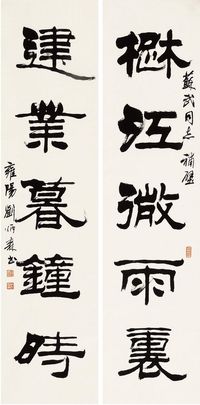 蘇武同志 補壁
楚江微雨裏
建業暮鐘時
雍陽劉炳森書